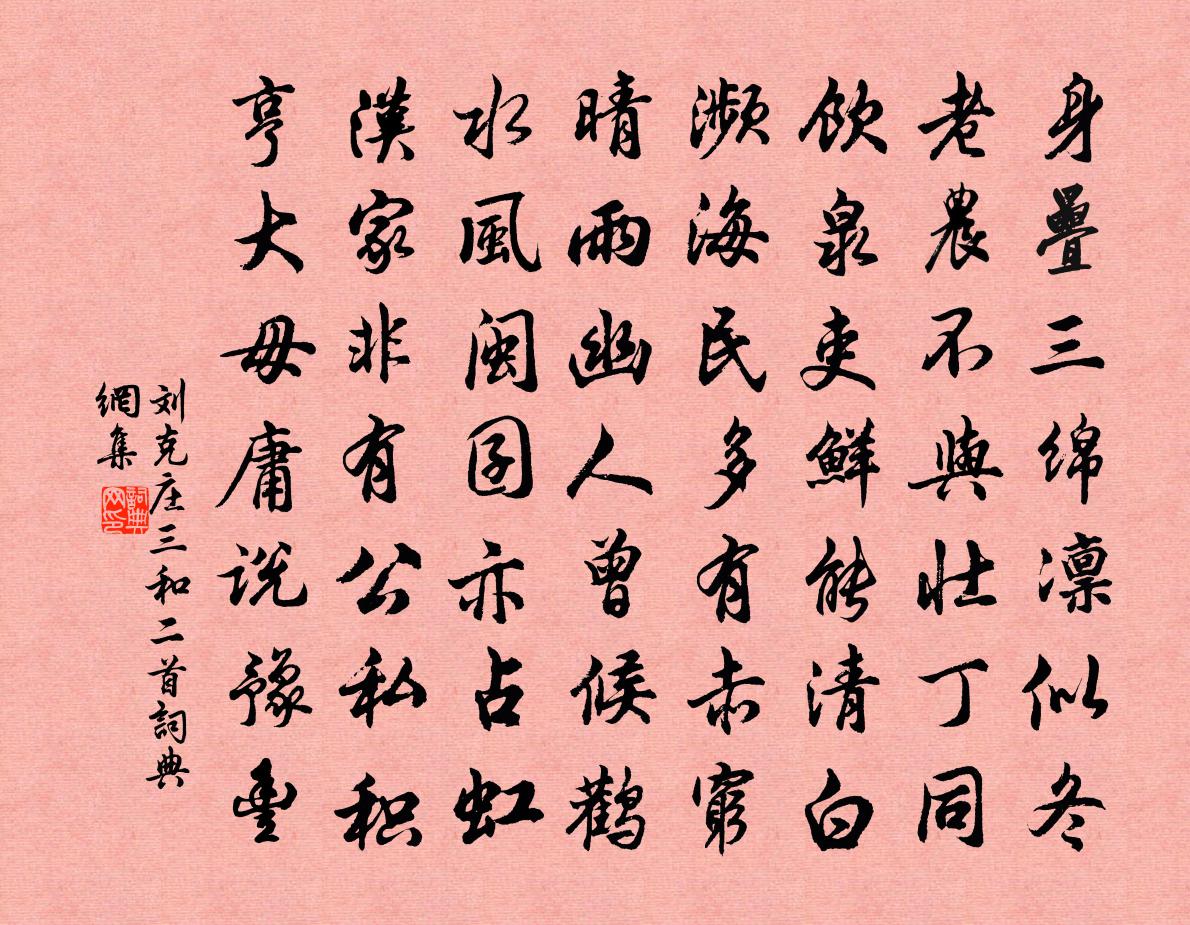 身疊三绵凛似冬
老農不與壮丁同
飲泉吏鮮能清白
瀕海民多有赤窮
晴雨幽人曾候鹳
水風闽囝亦占虹
漢家非有公私积
亨大毋庸说豫豐
刘克庄三和二首詞典
網集
詞典
网印